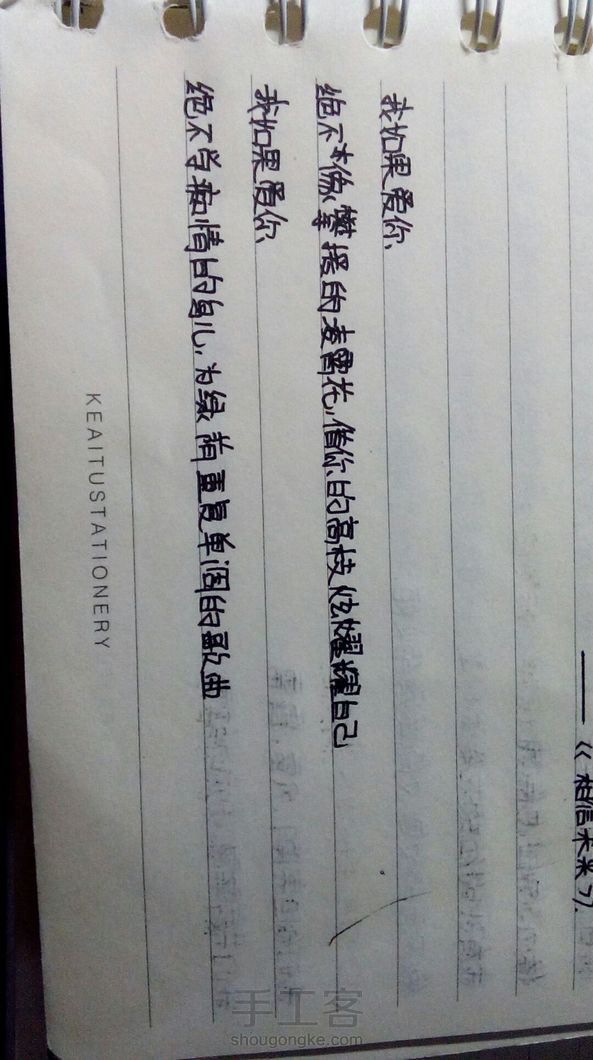 ——《相信未来》.
我如果爱你
绝不像攀援的凌霄花,借你的高枝炫耀自己
我如果爱你
绝不学痴情的鸟儿,为绿荫重复单调的歌曲
KEAITUSTATIONERY
手工客
shougongke.com